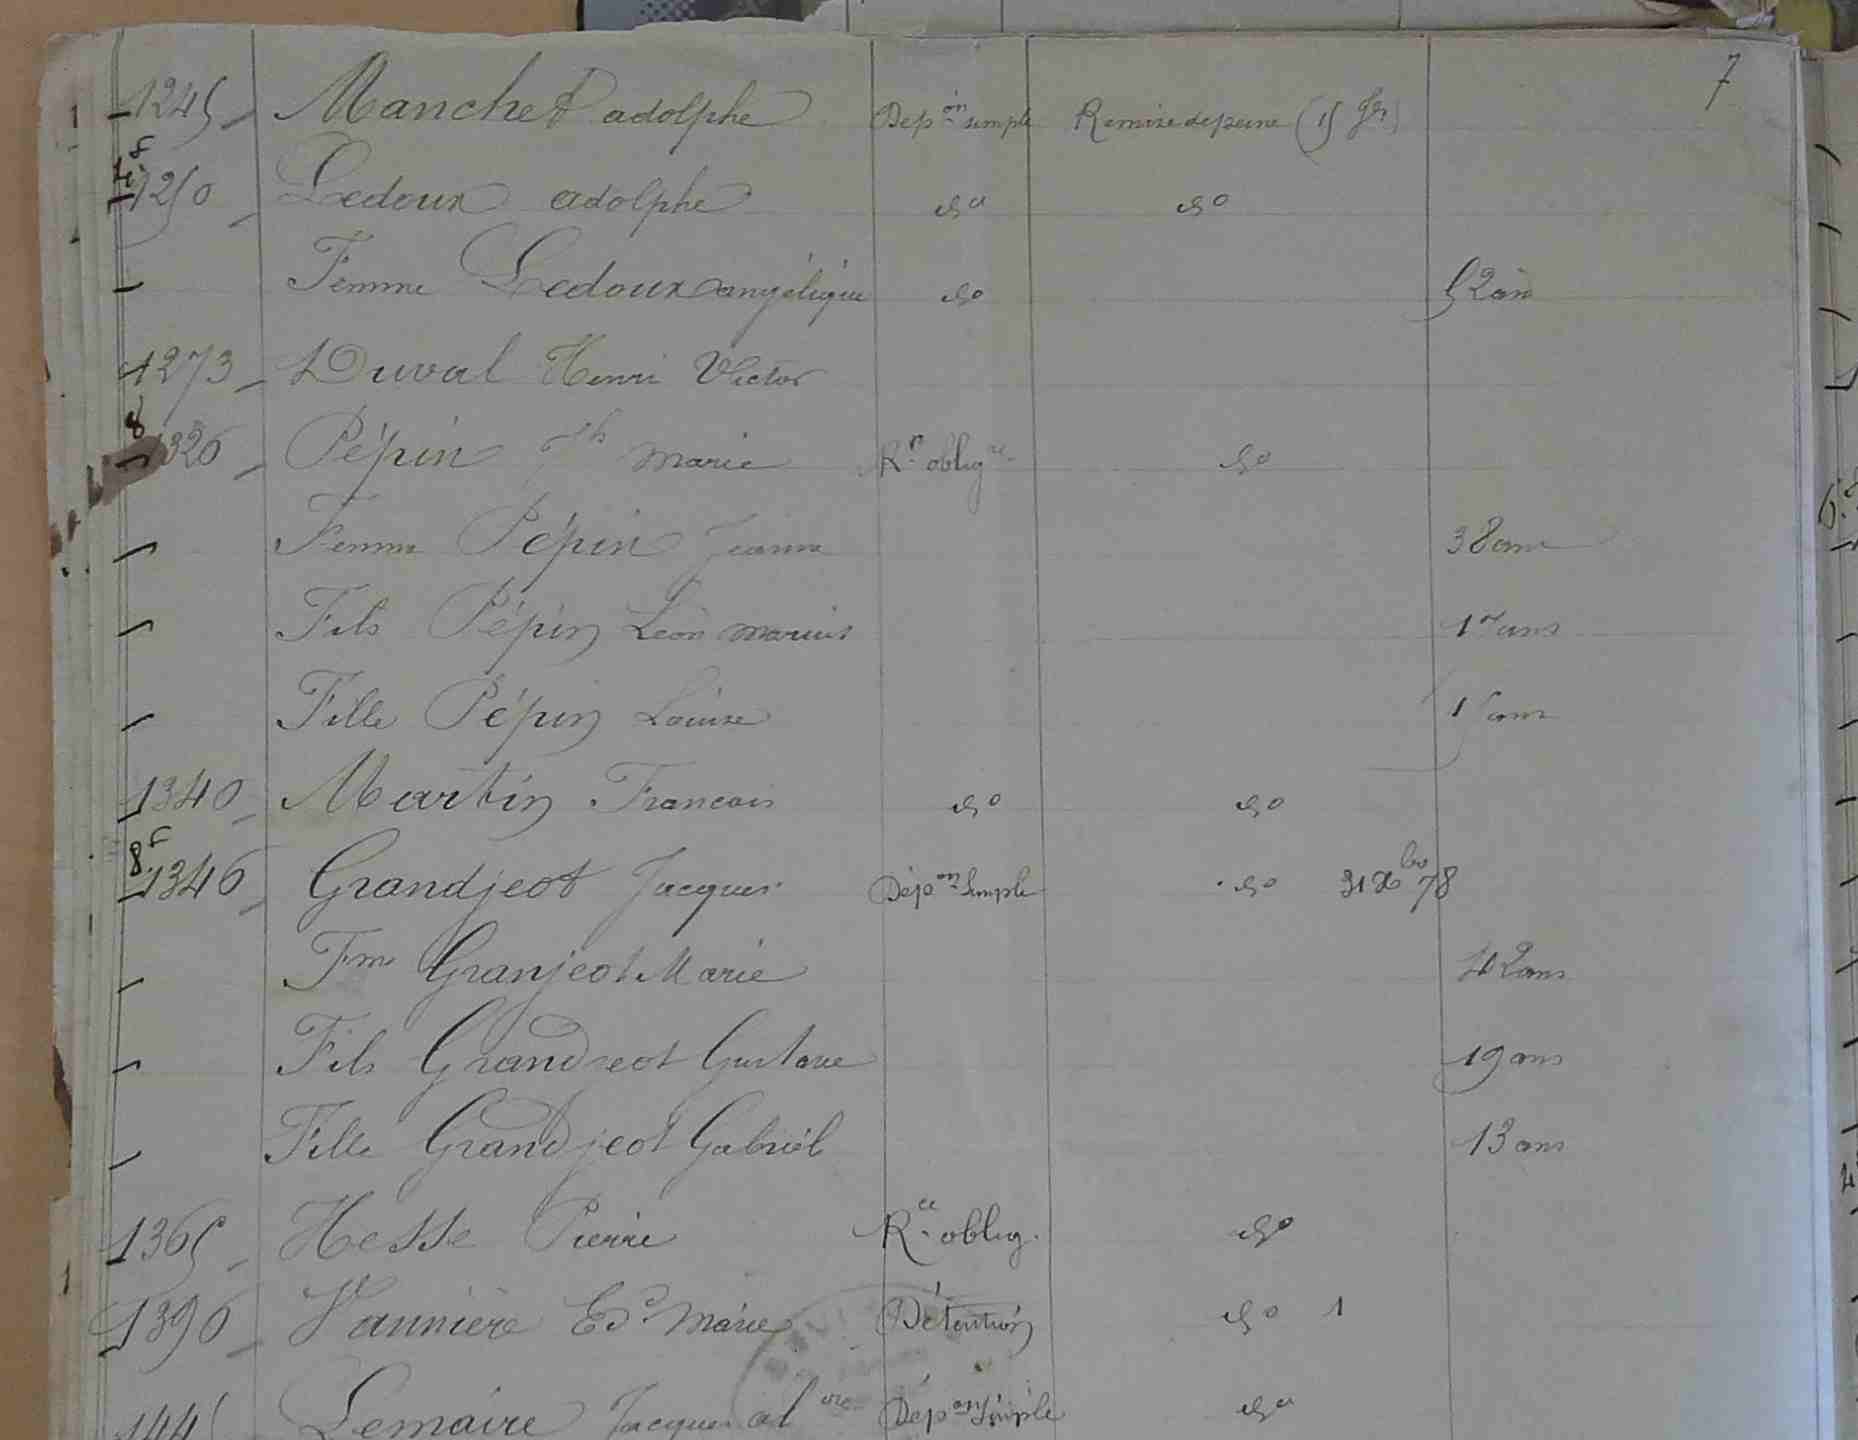 7
1245 Manchet adolphe Dépon simple Remise de peine (15 Jr)
4.f
1250 Ledoux adolphe do do
Femme Ledoux angélique do 52 an
1273 Duval Henri Victor
8
1326 Pépin Jh Marie Rn oblig re do
Femme Pépin Jeanne 38 ans
Fils Pépin Léon marius 17 ans
Fille Pépin Louise 15 ans
1340 Martin Francois do do
8f
1346 Grandjeot Jacques Dépon Simple do 31 Xbre 78
Fme Granjeot Marie 42 ans
Fils Grandjeot Gustave 19 ans
Fille Grandjeot Gabriel 13 ans
1365 Hesse Pierre Rce oblig. do
1396 Vannière Ed Marie Détention do 1
1445 Lemaire Jacques Dépon Simple do